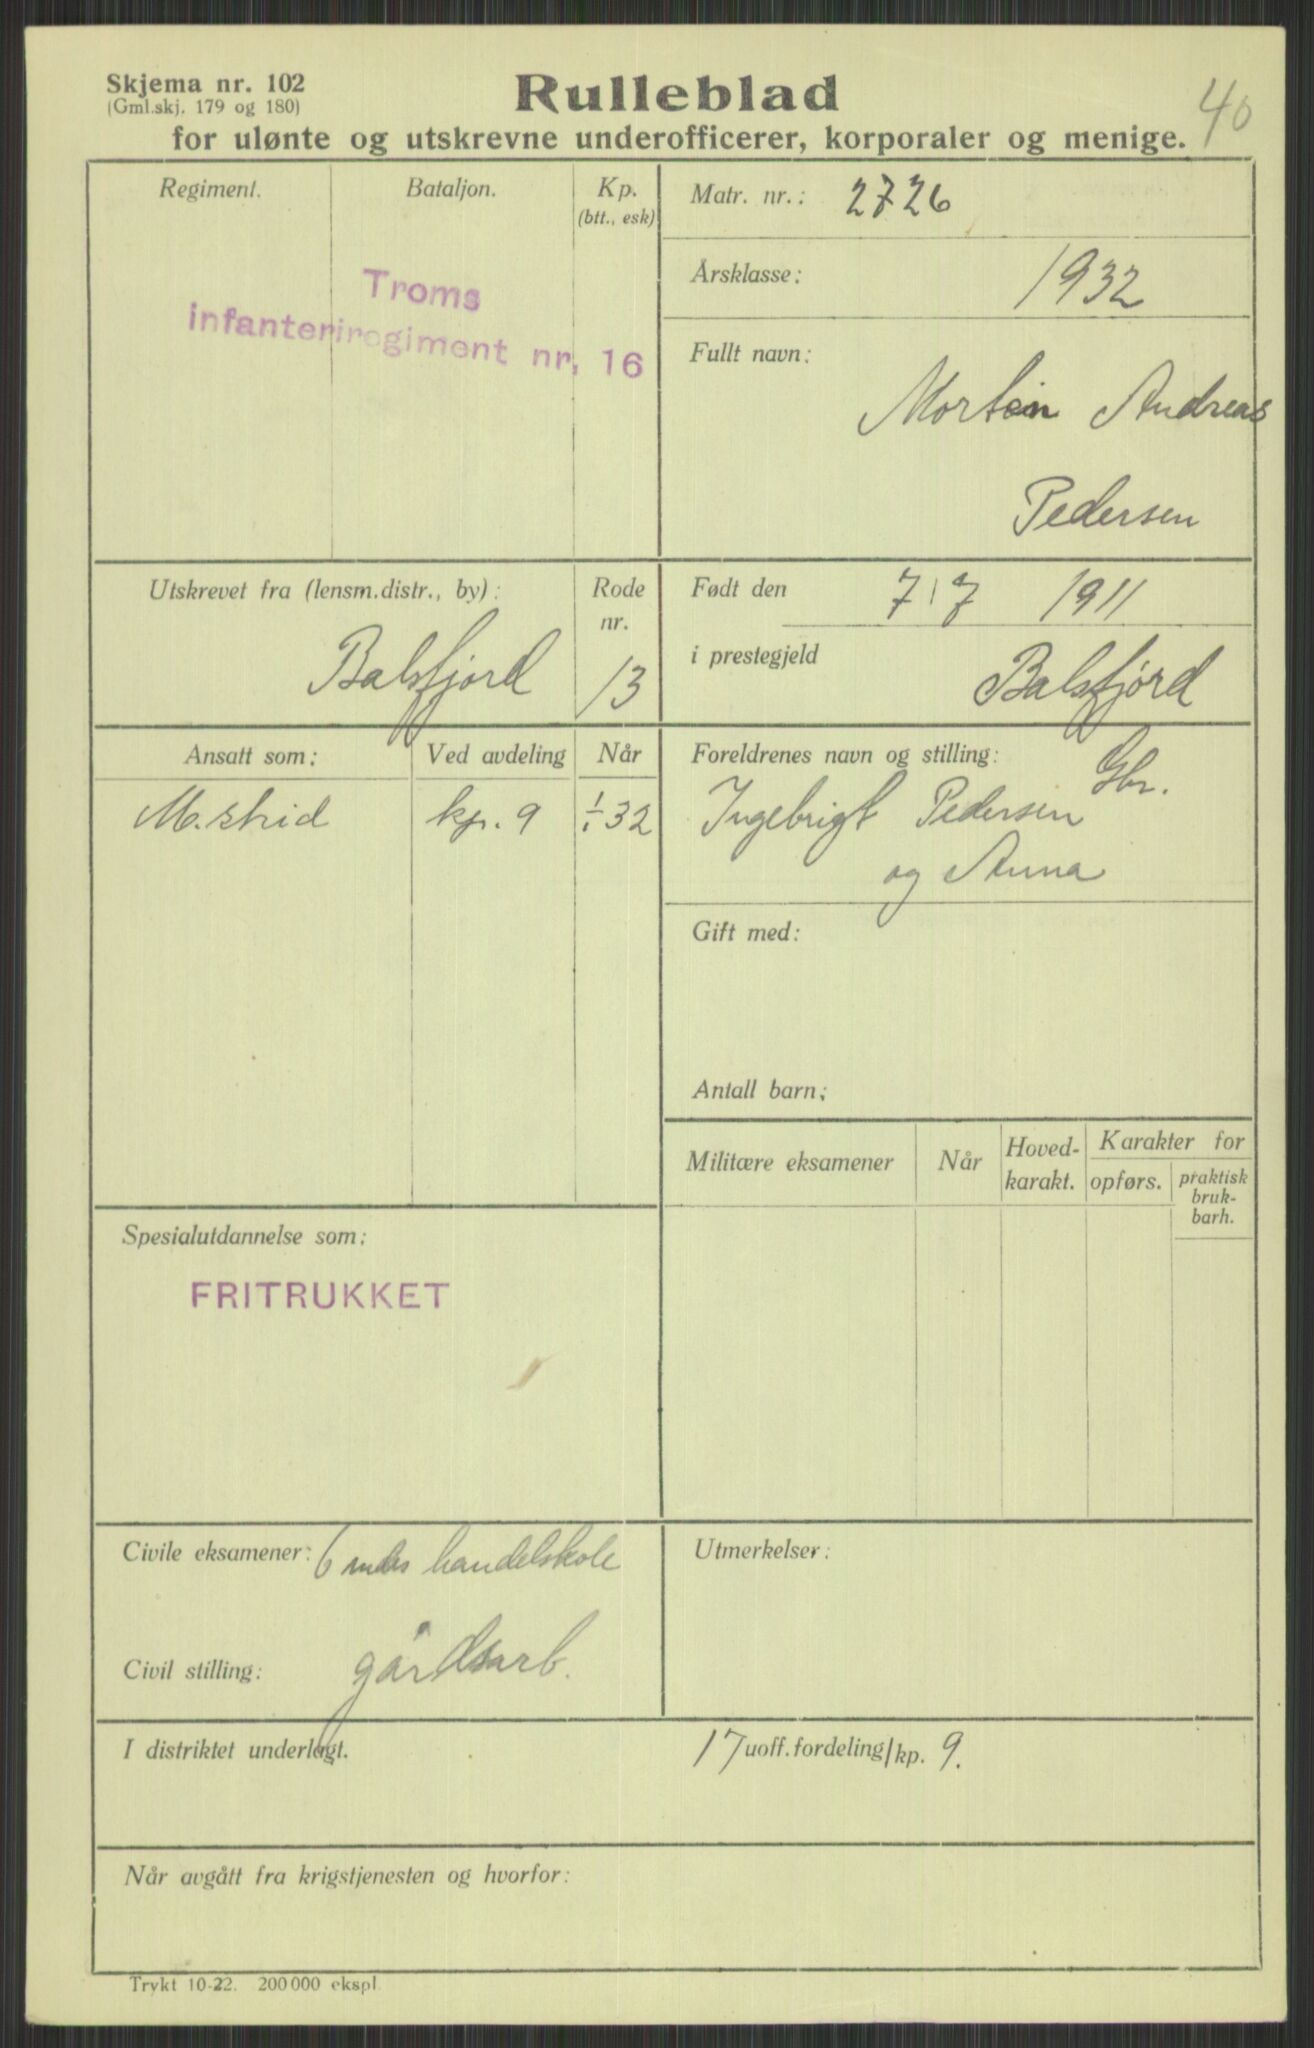 Skjema nr. 102
(Gml.skj. 179 og 180)
Rulleblad
40
for ulønte og utskrevne underofficerer, korporaler og menige.
Regiment.
Bataljon.
Kp.
(btt., esk)
Troms
infanteriregiment nr. 16
Matr. nr.: 2726
Årsklasse: 1932
Fullt navn:
Morten Andreas
Pedersen
Utskrevet fra (lensm.distr., by):
Balsfjord
Rode
nr.
13
Født den 7/7 1911
i prestegjeld Balsfjord
Ansatt som:
Ved avdeling
Når
kp. 9
1/1 32
Foreldrenes navn og stilling: Gbr.
Ingebrigt Pedersen
og Anna
Gift med:
Antall barn:
Militære eksamener
Når
Hoved-
karakt.
Karakter for
opførs.
praktisk
bruk-
barh.
Spesialutdannelse som:
FRITRUKKET
Civile eksamener: 6 mdrs handelskole
Civil stilling: gårdsarb.
Utmerkelser:
I distriktet underlagt. 17 uoff. fordeling/kp. 9.
Når avgått fra krigstjenesten og hvorfor:
Trykt 10-22. 200 000 ekspl.